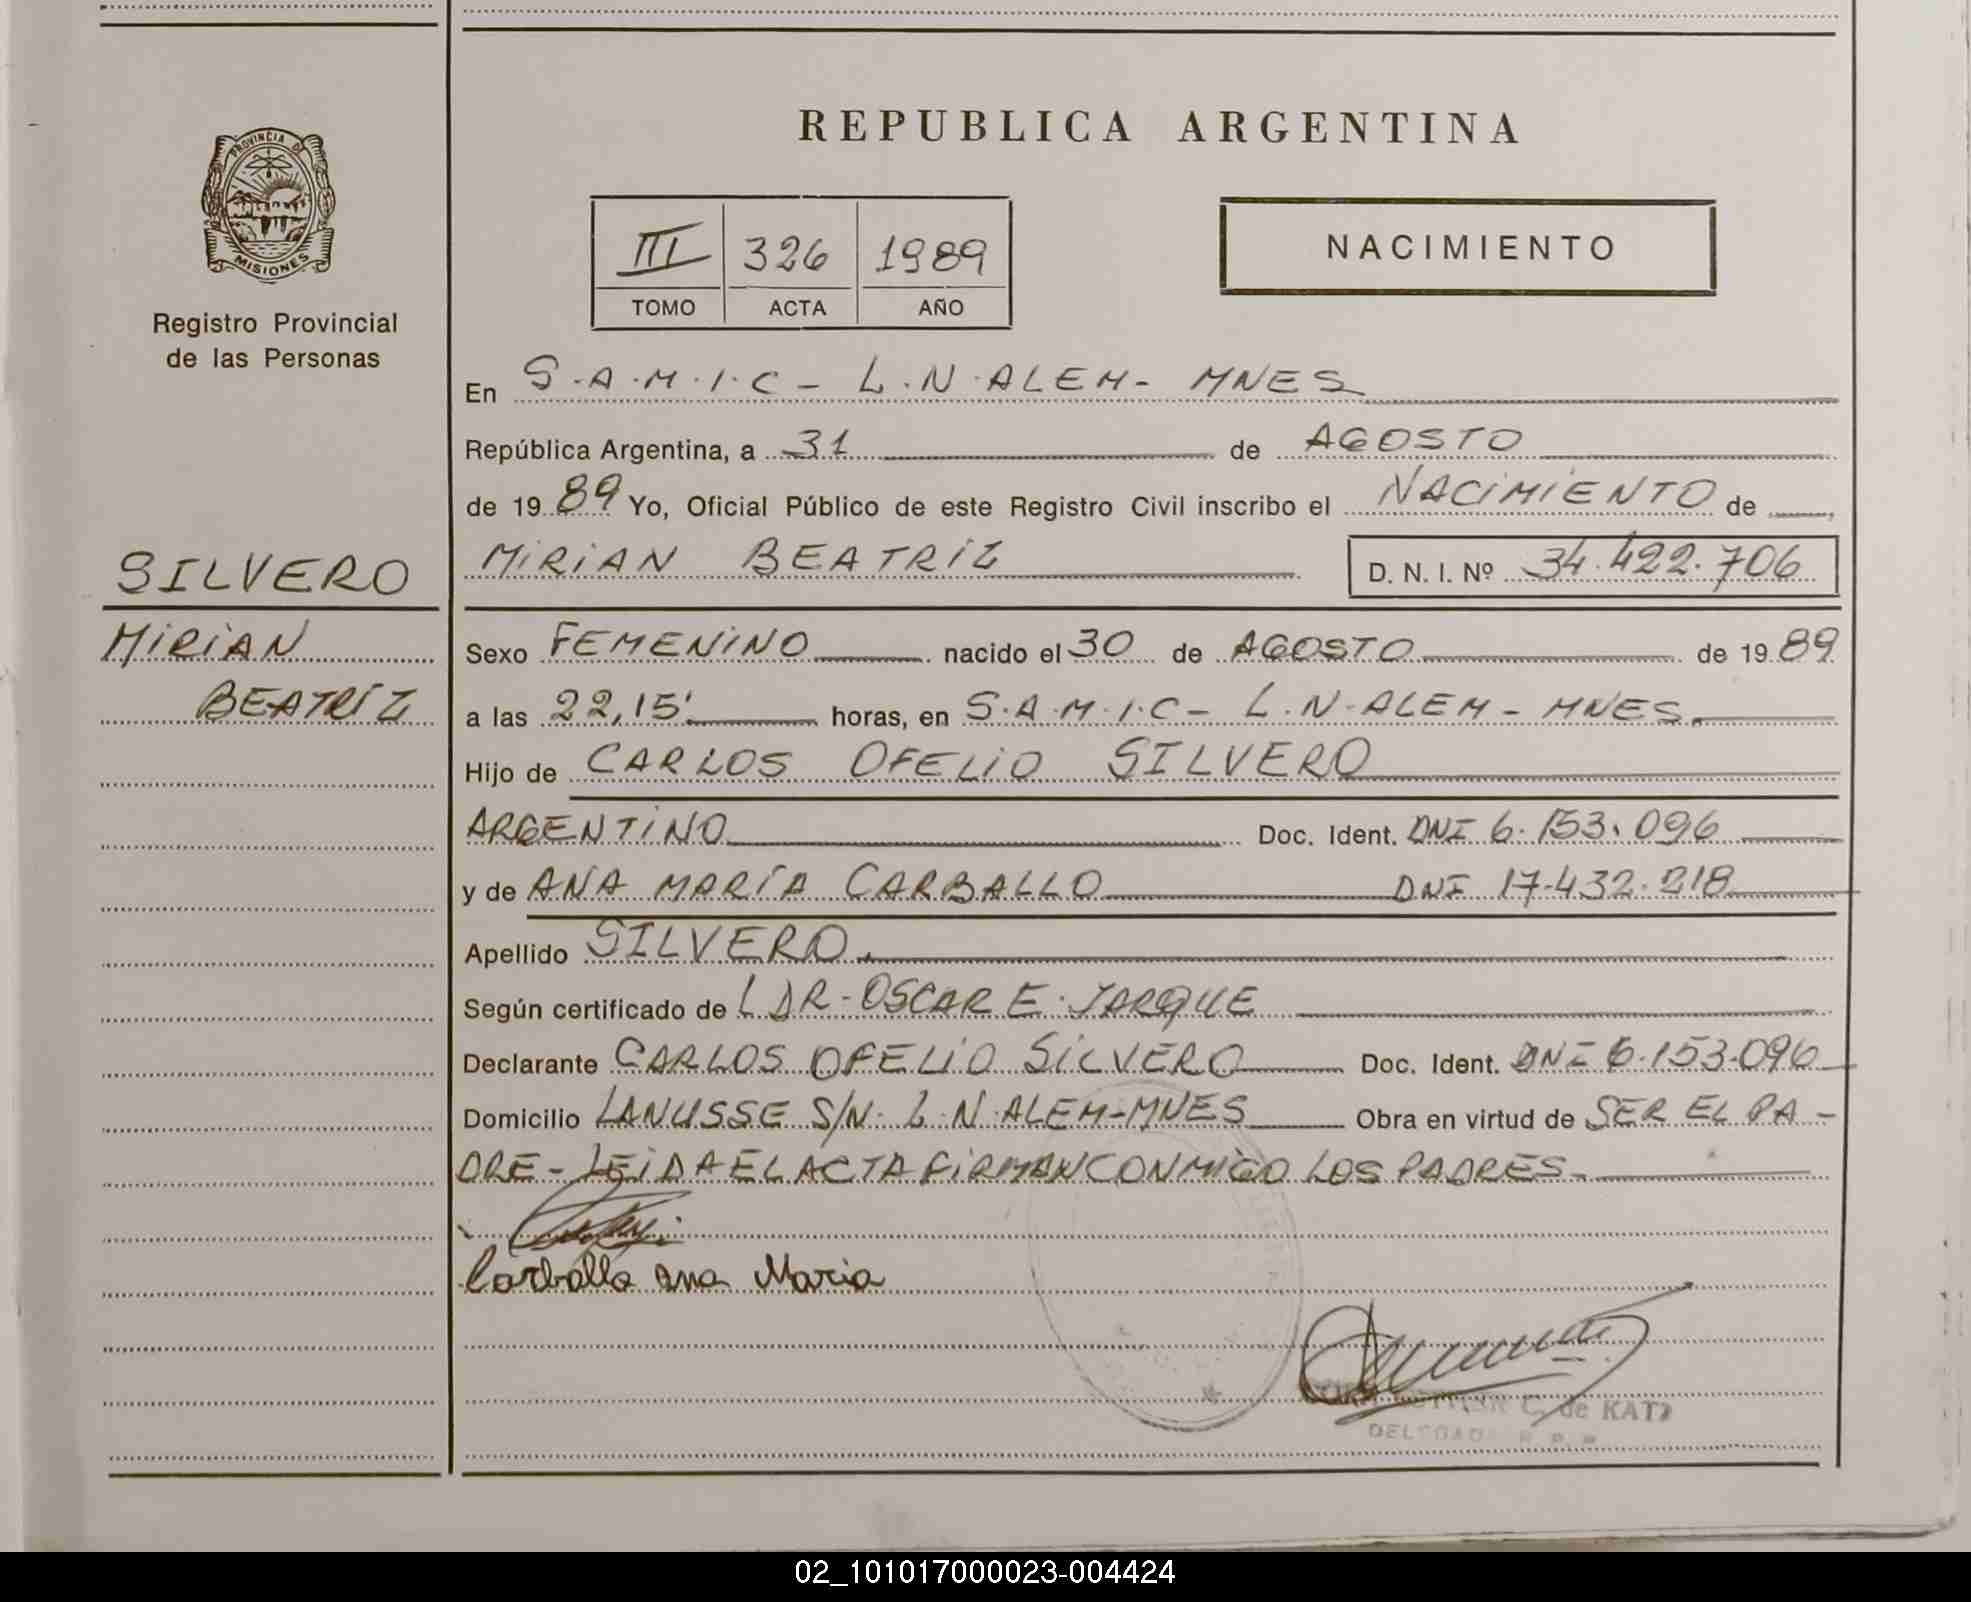 PROVINCIA DE
MISIONES
Registro Provincial
de las Personas
SILVERO
MIRIAN
BEATRÍZ
REPUBLICA ARGENTINA
III 326 1989
TOMO ACTA AÑO
NACIMIENTO
En S.A.M.I.C - L.N.ALEM- MNES
República Argentina, a 31 de AGOSTO
de 1989 Yo, Oficial Público de este Registro Civil inscribo el NACIMIENTO de
MIRIAN BEATRÍZ D. N. I. Nº 34.422.706
Sexo FEMENINO nacido el 30 de AGOSTO de 1989
a las 22,15' horas, en S.A.M.I.C - L.N.ALEM - MNES.
Hijo de CARLOS OFELIO SILVERO
ARGENTINO Doc. Ident. DNI 6.153.096
y de ANA MARÍA CARBALLO DNI 17.432.218
Apellido SILVERO.
Según certificado de L DR. OSCAR E. JARQUE
Declarante CARLOS OFELIO SILVERO Doc. Ident. DNI 6.153.096
Domicilio LANUSSE S/N. L.N.ALEM-MNES Obra en virtud de SER EL PA-
DRE - LEIDA EL ACTA FIRMAN CONMIGO LOS PADRES.
Carballo Ana Maria
C. de KATZ
02_101017000023-004424